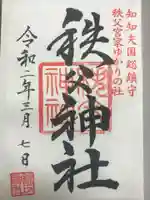 知知夫国総鎮守
秩父宮家ゆかりの社
秩父神社
令和二年三月七日